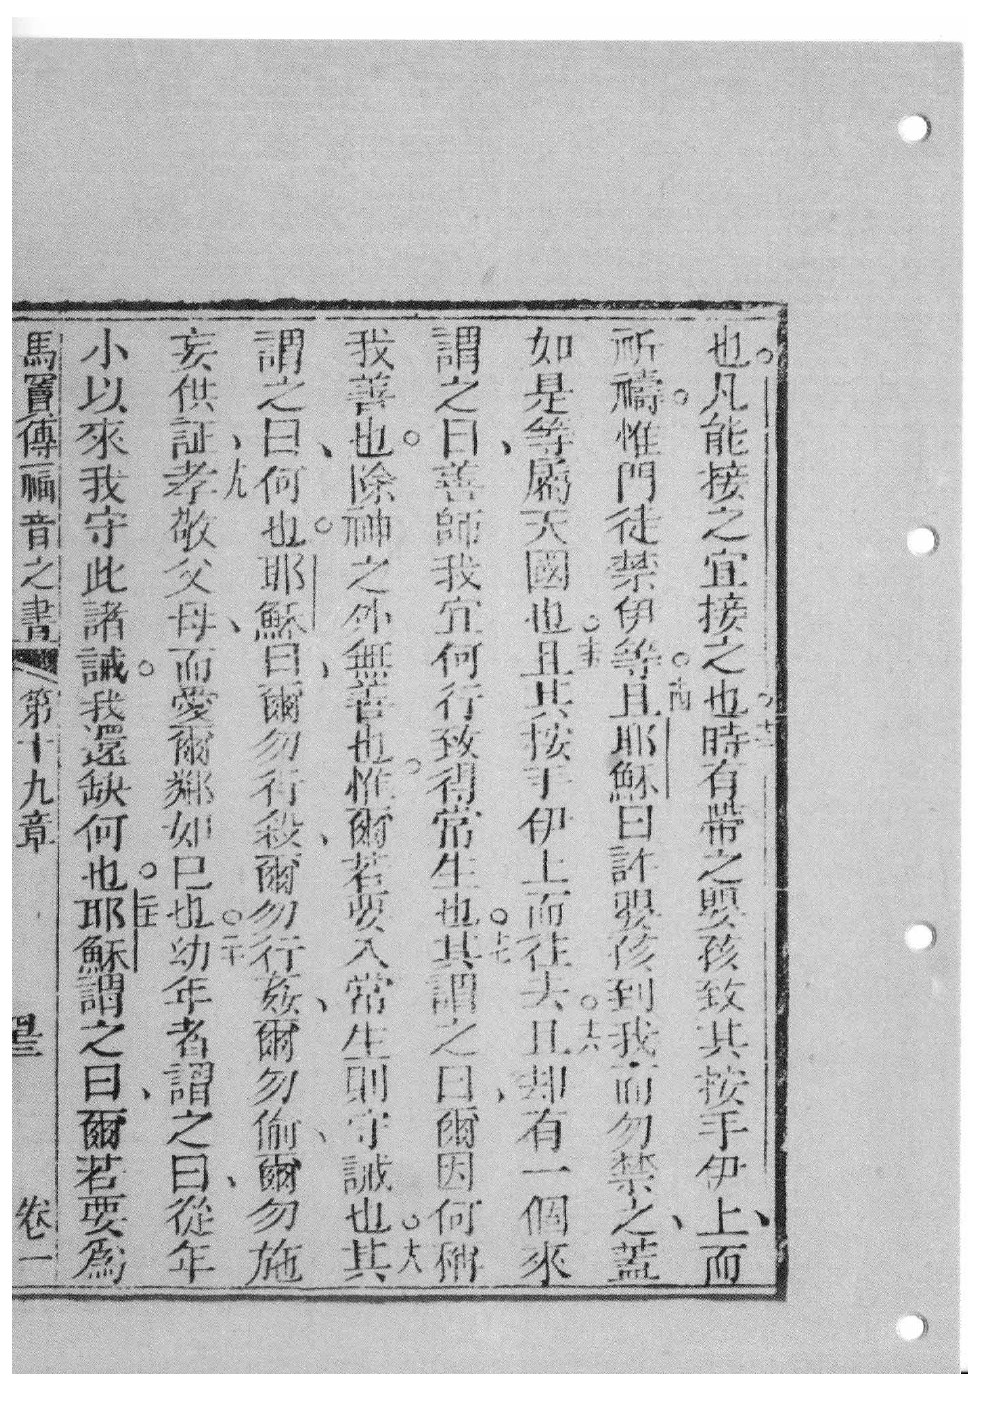 也。凡能接之宜接之也。十三時有帶之嬰孩致其按手伊上、而
祈禱。惟門徒禁伊等。十四且耶穌曰許嬰孩到我而勿禁之、蓋
如是等屬天國也。十五且其按手伊上而往去。十六且却有一個來
謂之曰、善師我宜何行致得常生也。十七其謂之曰、爾因何稱
我善也。除神之外無善也。惟爾若要入常生則守誡也。十八其
謂之曰、何也。耶穌曰、爾勿行殺、爾勿行姦、爾勿偷、爾勿施
妄供証、十九孝敬父母、而愛爾鄰如己也。二十幼年者謂之曰、從年
小以來我守此諸誡。我還缺何也。二十一耶穌謂之曰、爾若要為
馬竇傳福音之書 第十九章 卷一